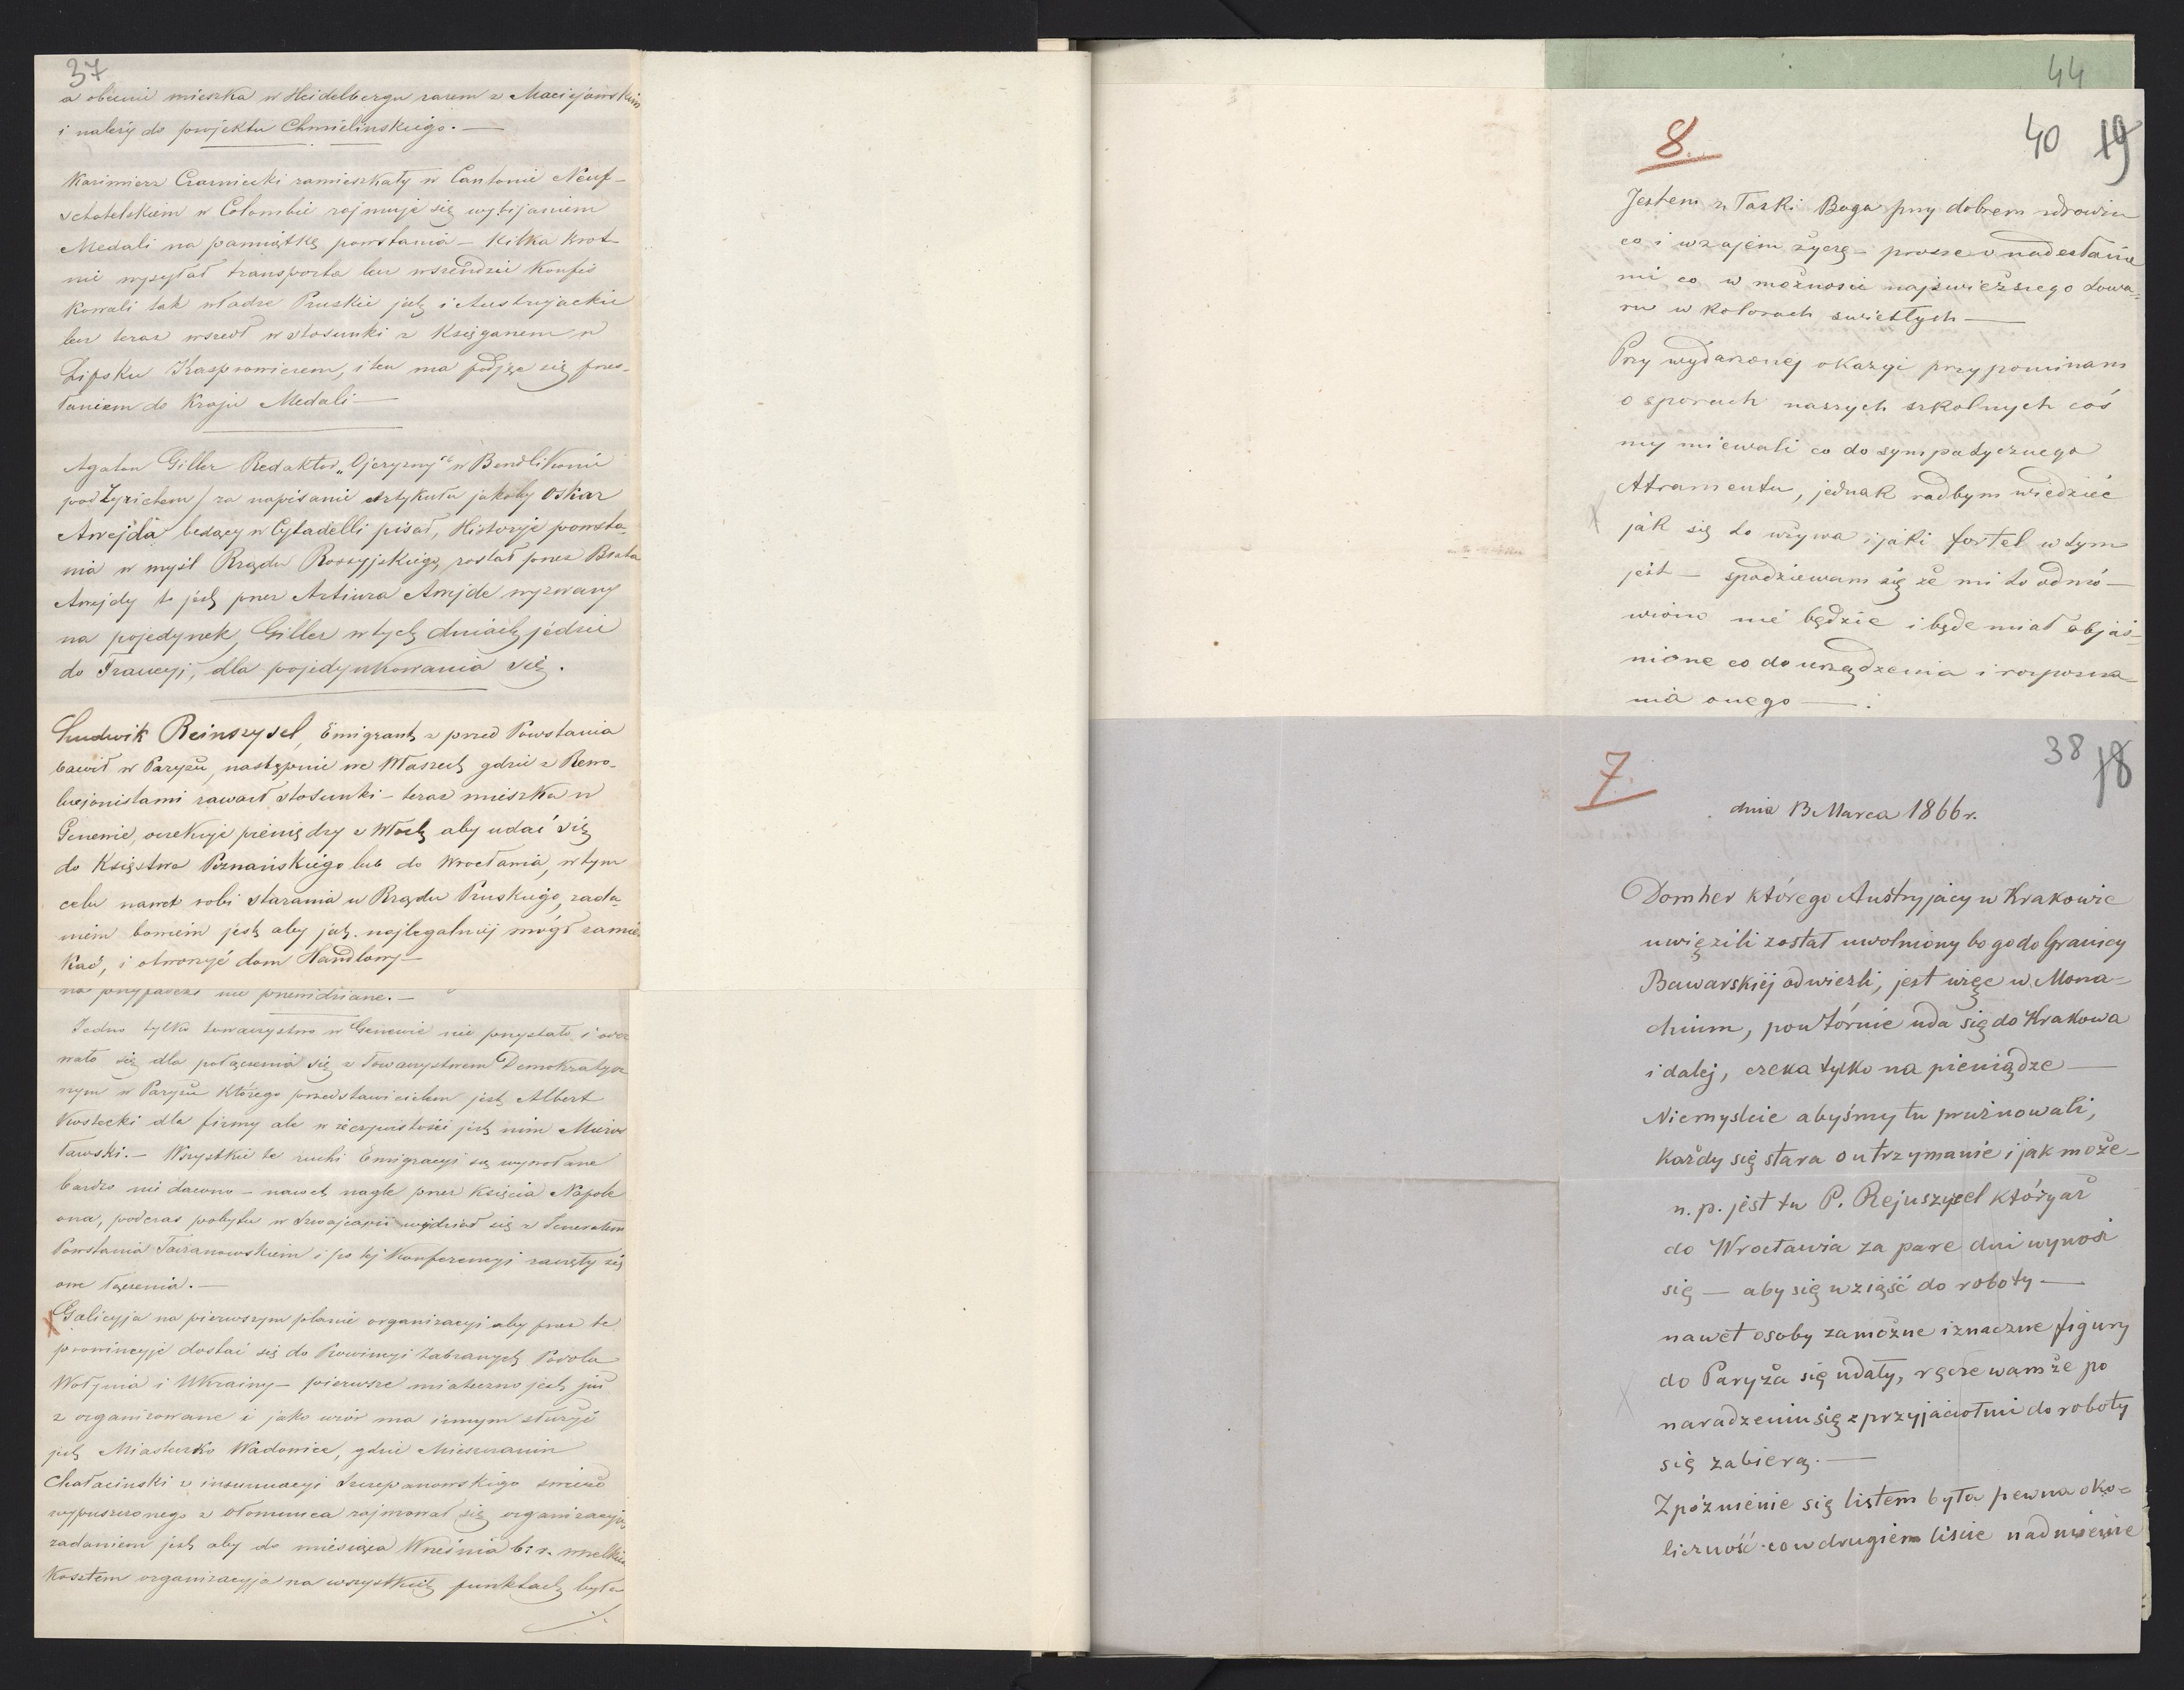 37
a obecnie mieszka w Heidelbergu razem z Maciejowskim
i należy do projektu Chmielinskiego. —
Kazimierz Czarniecki zamieszkały w Cantonie Neuf-
schatelskiem w Colombie zajmuje się wybijaniem
Medali na pamiątkę powstania — kilka krot-
nie wysyłał transporta lecz wszendzie konfis
kowali tak władze Pruskie jak i Austryjackie
lecz teraz wszedł w stosunki z Księgarzem w
Lipsku Kasprowiczem, i ten ma podjąc się przes-
łaniem do Kraju Medali —
Agaton Giller Redaktor „Ojczyzny" w Bendlikonie
pod Zyrichem / za napisanie artykułu jakoby Oskar
Awejda będący w Cytadelli pisał, Historyje powsta-
nia w myśl Rządu Rossyjskiego, został przez Brata
Awejdy to jest przez Artiura Awejde wyzwany
na pojedynek, Giller w tych dniach jedzie
do Francyi, dla pojedynkowania się.
Ludwik Reinszysel, Emigrant z przed Powstania
bawił w Paryżu, następnie we Włoszech gdzie z Rewo-
lucjonistami zawarł stosunki — teraz mieszka w
Genewie, oczekuje pieniędzy z Włoch aby udać się
do Księstwa Poznańskiego lub do Wrocławia, w tym
celu nawet robi starania u Rządu Pruskiego, zada-
niem bowiem jest aby jak najlegalniej mógł zamiesz
kać, i otworzyć dom Handlowy —
na przypadki nie przewidziane. —
Jedno tylko towarzystwo w Genewie nie przystało i oder
wało się dla połączenia się z Towarzystwem Demokratycz
nym w Paryżu którego przedstawicielem jest Albert
dla firmy ale w rzeczywistości jest nim Mieros
ławski. — Wszystkie te ruchi Emigracyi są wywołane
bardzo nie dawno — nawet nagle przez Księcia Napole
ona, podczas pobytu w Szwajcarii widział się z Generałem
Powstania Taczanowskiem i po tej Konferencyi zaczęły się
owe łączenia. —
Galicyja na pierwszym planie organizacyi aby przez te
prowincyje dostać się do Prowincyi Zabranych Podola
Wołynia i Ukrainy — pierwsze miateczno jest już
z organizowane i jako wzór ma innym służyć
jest Miasteczko Wadowice, gdzie Mieszczanin
Chałaciński z insinuacyi Szczepanowskiego świeżo
wypuszczonego z Ołomunca zajmował się organizacyją
zadaniem jest aby do miesiąca Września b: r. wielkim
Kosztem organizacyja na wszystkich punktach była
44
8.
40 19
Jestem z łaski Boga przy dobrem zdrowiu
co i wzajem życzę — prosze o nadesłanie
mi co w możnosci najswieższego towa-
ru w kolorach swietłych —
Przy wydarzonej okazyi przypominam
o sporach naszych szkolnych coś
my miewali co do sympatycznego
Atramentu, jednak radbym wiedzieć
jak się to używa i jaki fortel w tym
jest — spodziewam się że mi to odmó-
wione nie będzie i będe miał objaś-
nione co do urządzenia i rozpozna-
nia onego — :
7.
38 18
dnia 13 Marca 1866 r.
Domher którego Austryjacy w Krakowie
uwięzili został uwolniony bo go do Granicy
Bawarskiéj odwiezli, jest więc w Mona-
chium, powtórnie uda się do Krakowa
i daléj, czeka tylko na pieniądze —
Niemyslcie abyśmy tu prużnowali,
każdy się stara o utrzymanie i jak może —
n. p. jest tu P. Rejuszysel któryaż
do Wrocławia za pare dni wynosi
się — aby się wziąść do roboty —
nawet osoby zamożne i znaczne figury
do Paryża się udały, ręcze wam że po
naradzeniu się z przyjaciołmi do roboty
się zabierą. —
Zpóznienie się listem była pewna oko-
liczność co w drugiem liscie nadmienie